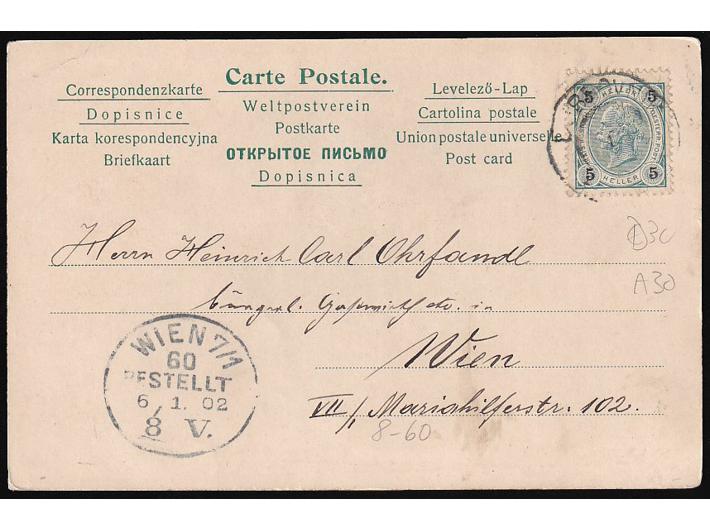 Carte Postale.
Correspondenzkarte
Dopisnice
Karta korespondencyjna
Briefkaart
Weltpostverein
Postkarte
ОТКРЫТОЕ ПИСЬМО
Dopisnica
Levelező-Lap
Cartolina postale
Union postale universelle
Post card
5 5
5 HELLER 5
Herrn Heinrich Carl Ohrfandl
bürgerl. Gastwirth etc. in
Wien
VII/1 Mariahilferstr. 102.
WIEN 7/1
60
BESTELLT
6 1. 02
8 V.
8-60
A30